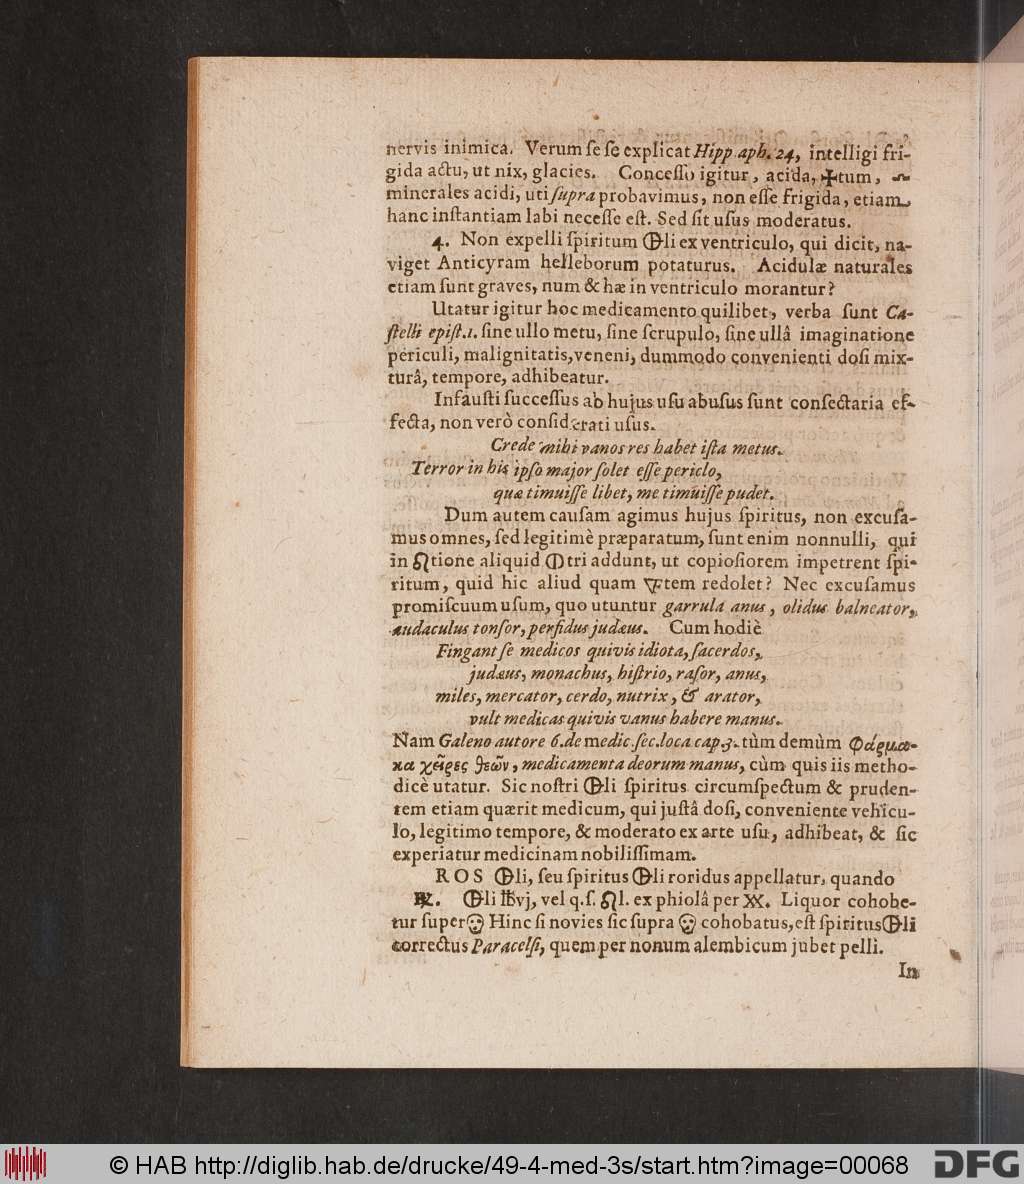 nervis inimica. Verum ſe ſe explicat Hipp aph. 24, intelligi fri-
gida actu, ut nix, glacies. Conceſſo igitur, acida, ✠tum,
minerales acidi, uti ſupra probavimus, non eſſe frigida, etiam
hanc inſtantiam labi neceſſe eſt. Sed ſit uſus moderatus.
4. Non expelli ſpiritum 🜖li ex ventriculo, qui dicit, na-
viget Anticyram helleborum potaturus. Acidulæ naturales
etiam ſunt graves, num & hæ in ventriculo morantur?
Utatur igitur hoc medicamento quilibet, verba ſunt Ca-
ſtelli epiſt.1. ſine ullo metu, ſine ſcrupulo, ſine ullâ imaginatione
periculi, malignitatis, veneni, dummodo convenienti doſi mix-
turâ, tempore, adhibeatur.
Infauſti ſucceſſus ab hujus uſu abuſus ſunt conſectaria ef-
fecta, non verò conſiderati uſus.
Crede mihi vanos res habet iſta metus.
Terror in his ipſo major ſolet eſſe periclo,
quæ timuiſſe libet, me timuiſſe pudet.
Dum autem cauſam agimus hujus ſpiritus, non excuſa-
mus omnes, ſed legitimè præparatum, ſunt enim nonnulli, qui
in ☊tione aliquid 🜕tri addunt, ut copioſiorem impetrent ſpi-
ritum, quid hic aliud quam 🜅tem redolet? Nec excuſamus
promiſcuum uſum, quo utuntur garrula anus, olidus balneator,
audaculus tonſor, perfidus judæus. Cum hodiè
Fingant ſe medicos quivis idiota, ſacerdos,
judæus, monachus, hiſtrio, raſor, anus,
miles, mercator, cerdo, nutrix, & arator,
vult medicas quivis vanus habere manus.
Nam Galeno autore 6. de medic. ſec. loca cap.3. tùm demùm φάρμα-
κα χεῖρες θεῶν, medicamenta deorum manus, cùm quis iis metho-
dicè utatur. Sic noſtri 🜖li ſpiritus circumſpectum & pruden-
tem etiam quærit medicum, qui juſtâ doſi, conveniente vehicu-
lo, legitimo tempore, & moderato ex arte uſu, adhibeat, & ſic
experiatur medicinam nobiliſſimam.
ROS 🜖li, ſeu ſpiritus 🜖li roridus appellatur, quando
℞. 🜖li ℔vj, vel q.ſ. ☊l. ex phiolâ per XX. Liquor cohobe-
tur ſuper Hinc ſi novies ſic ſupra cohobatus, eſt ſpiritus 🜖li
correctus Paracelſi, quem per nonum alembicum jubet pelli.
In
© HAB http://diglib.hab.de/drucke/49-4-med-3s/start.htm?image=00068
DFG